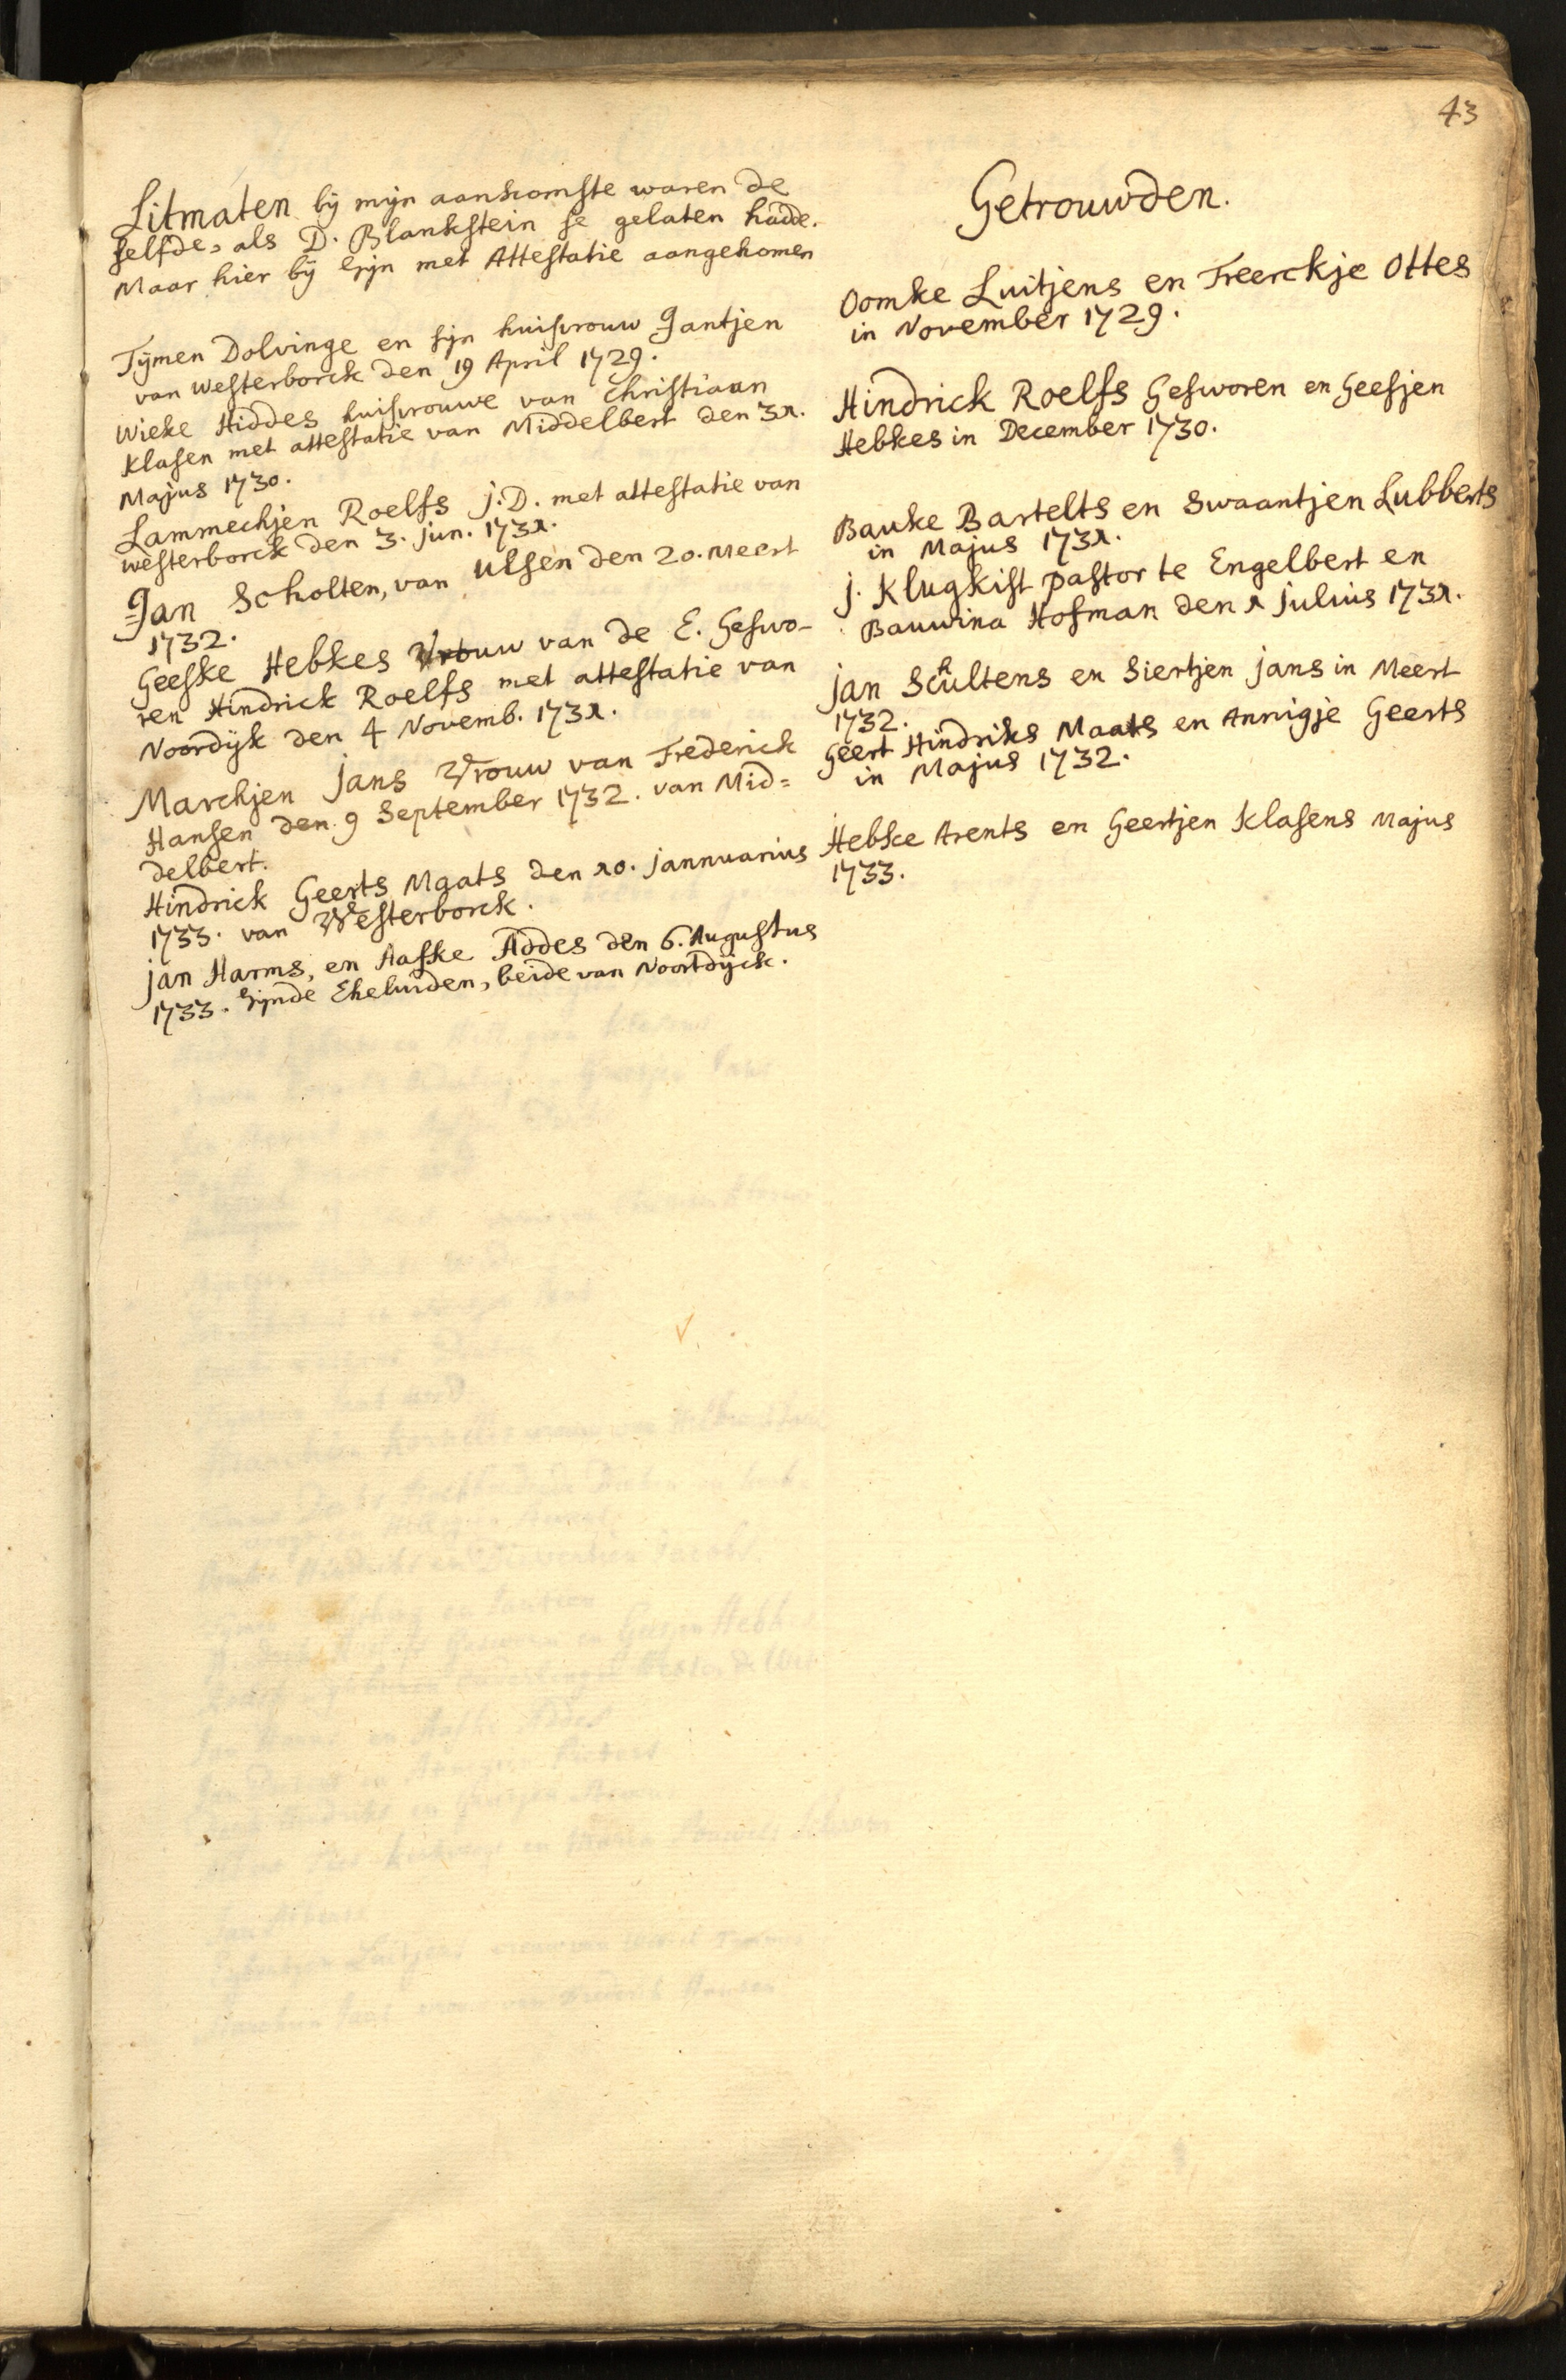 43
Litmaten bij mijn aankomste waren de
selfde, als D. Blankstein se gelaten hadde.
Maar hier bij zijn met Attestatie aangekomen
Tijmen Dolvinge en sijn huisvrouw Jantjen
van Westerborck den 19 April 1729.
Wieke Hiddes huisvrouwe van Christiaan
Klasen met attestatie van Middelbert den 31.
Majus 1730.
Lammechjen Roelfs J.D. met attestatie van
westerborck den 3. Jun. 1731.
Jan Scholten, van Ulsen den 20. Meert
1732.
Geeske Hebkes Vrouw van de E. Geswo-
ren Hindrick Roelfs met attestatie van
Noordijk den 4 Novemb. 1731.
Marchjen Jans Vrouw van Frederick
Hansen den 9 September 1732. van Mid=
delbert.
Hindrick Geerts Maats den 10. Jannuarius
1733. van Westerborck.
Jan Harms, en Aafke Addes den 6. Augustus
1733. zijnde Eheluiden, beide van Noortdijck.
Getrouwden.
Oomke Luitjens en Freerckje Ottes
in November 1729.
Hindrick Roelfs Gesworen en Geesjen
Hebkes in December 1730.
Bauke Bartelts en Swaantjen Lubberts
in Majus 1731.
J. Klugkist pastor te Engelbert en
Bauwina Hofman den 1 Julius 1731.
Jan Schultens en Siertjen Jans in Meert
1732.
Geert Hindriks Maats en Annigje Geerts
in Majus 1732.
Hebke Arents en Geertjen Klasens Majus
1733.